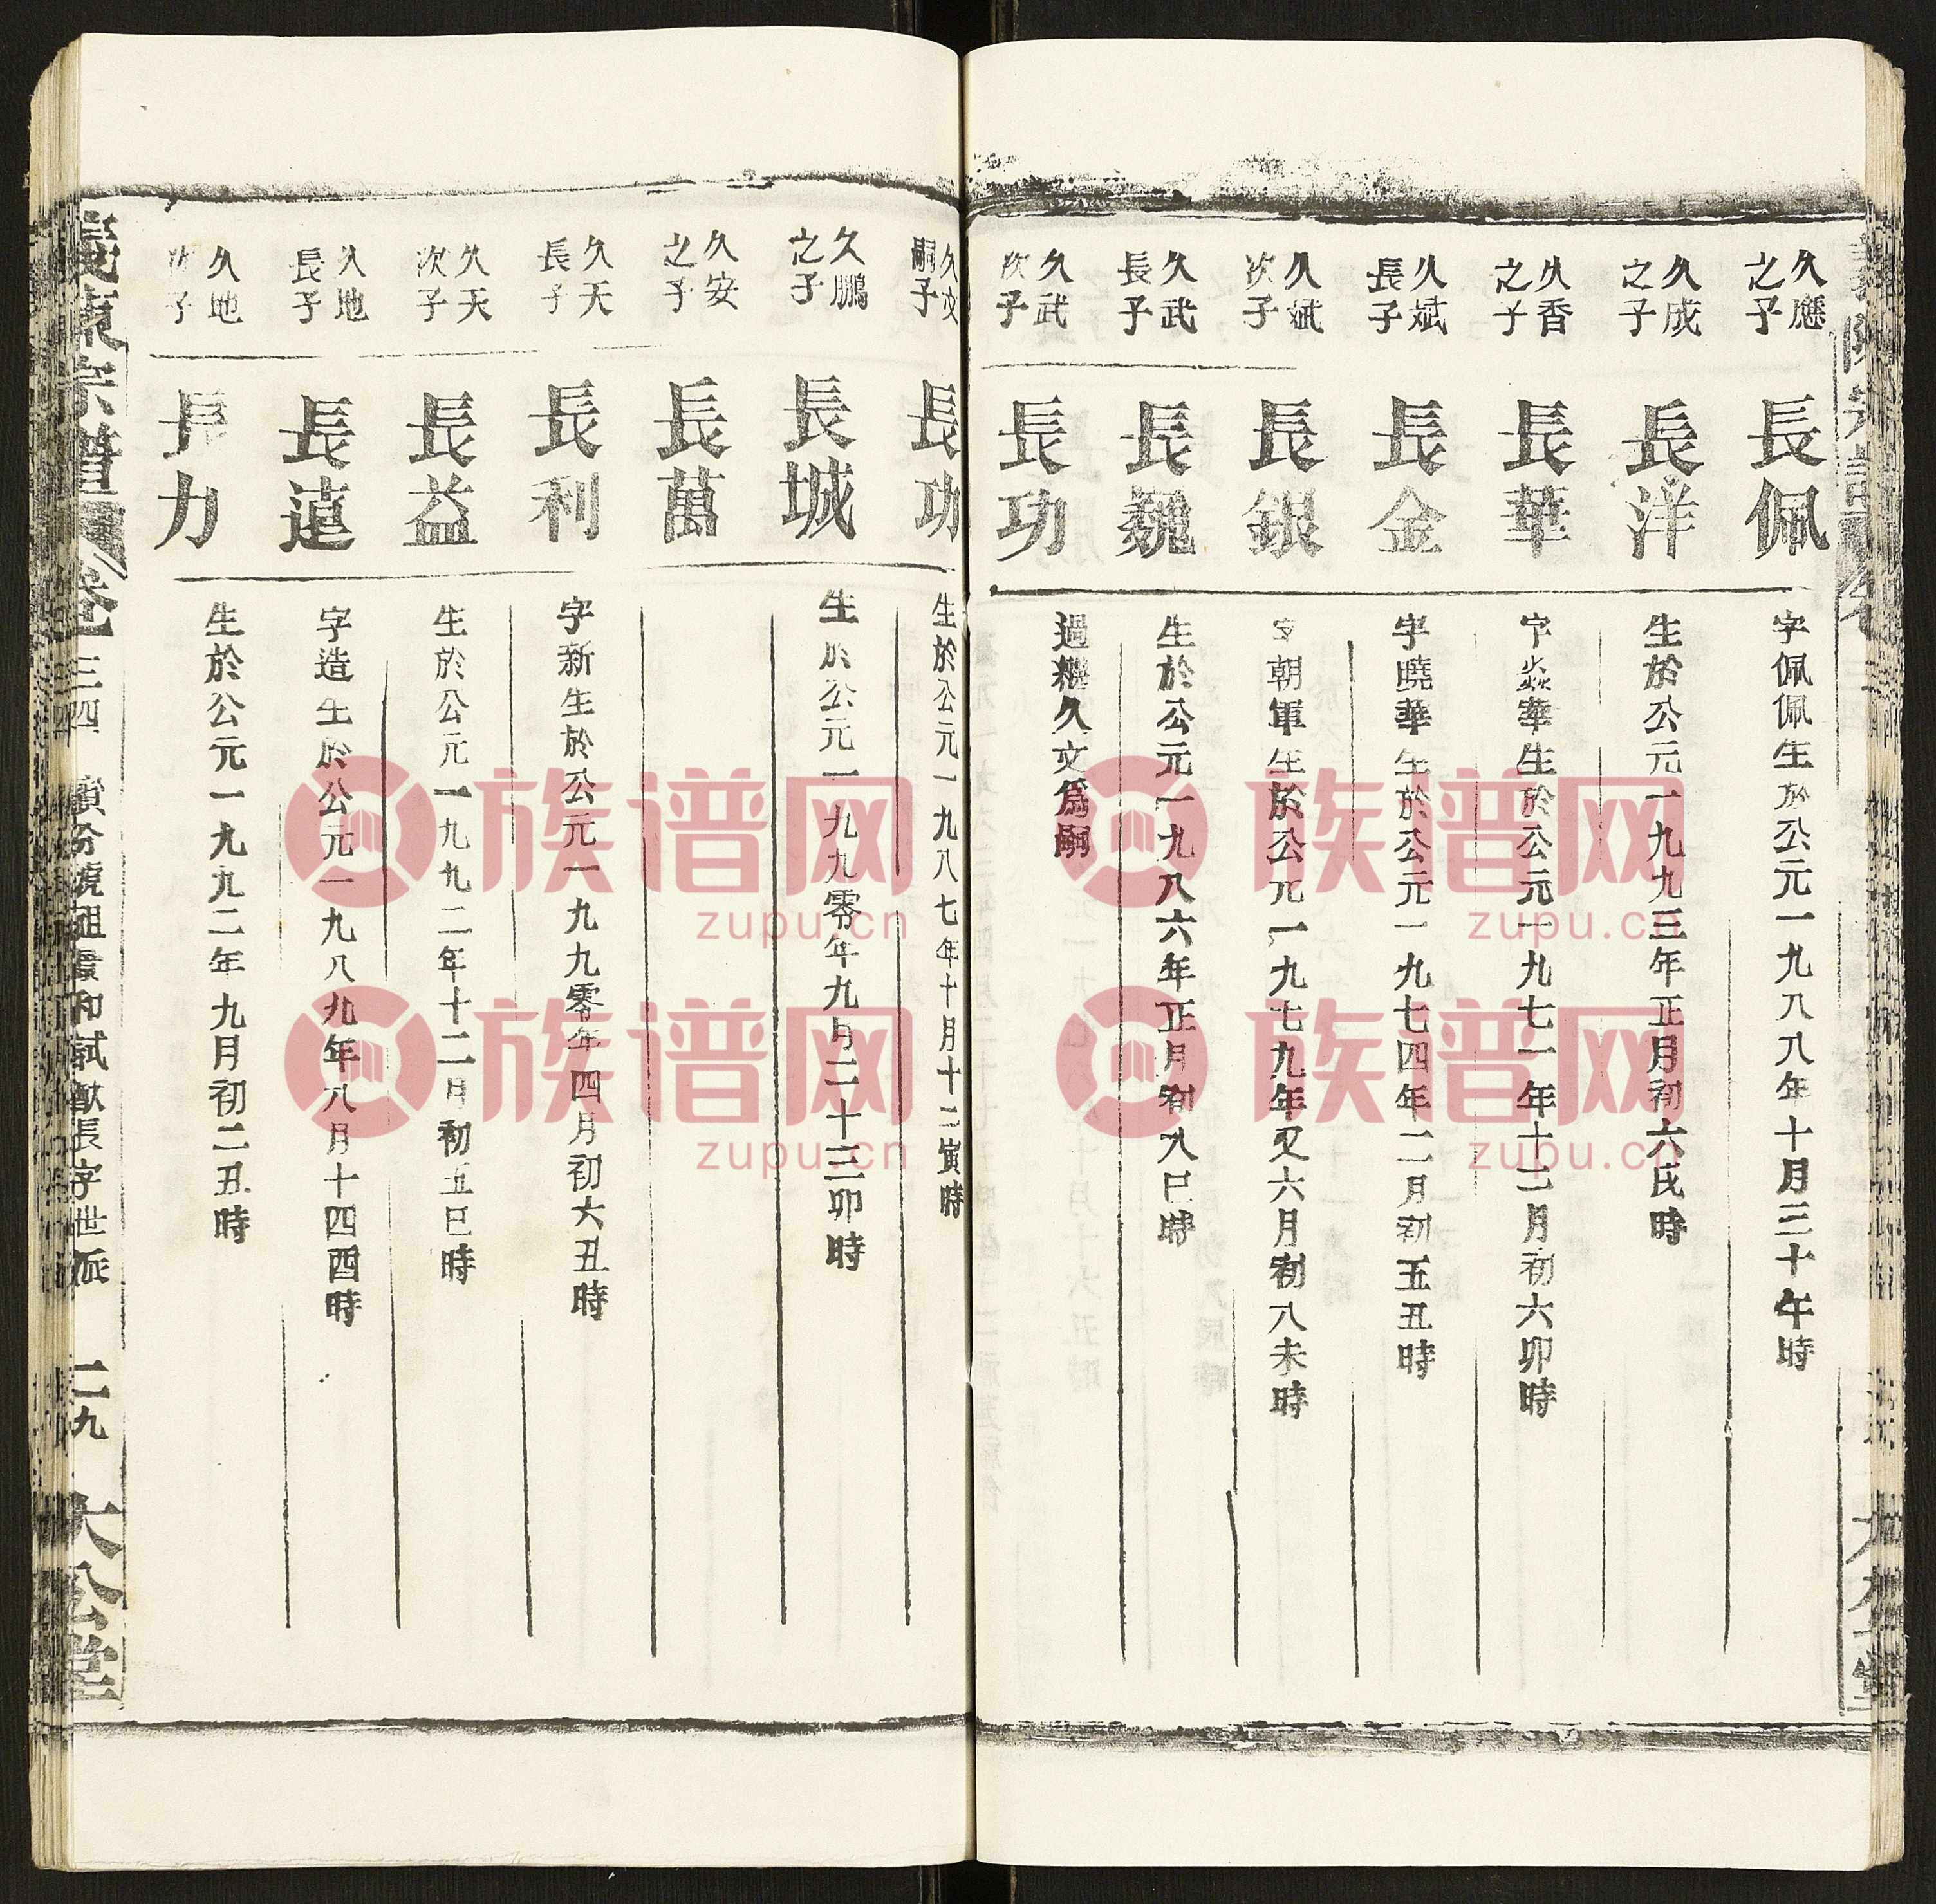 久應
之子
長佩
字佩佩生於公元一九八八年十月三十午時
久成
之子
長洋
生於公元一九九三年正月初六氏時
久香
之子
長華
字焱華生於公元一九七一年十二月初六卯時
久斌
長子
長金
字曉華生於公元一九七四年二月初五丑時
久斌
次子
長銀
字朝軍生於公元一九七九年又六月初八未時
久武
長子
長魏
生於公元一九八六年正月初八巳時
久武
次子
長功
過繼久文爲嗣
久文
嗣子
長功
生於公元一九八七年十月十二寅時
久鵬
之子
長城
生於公元一九九零年九月二十三卯時
久安
之子
長萬
久天
長子
長利
字新生於公元一九九零年四月初六丑時
久天
次子
長益
生於公元一九九二年十二月初五巳時
久地
長子
長蓮
字造生於公元一九八九年八月十四酉時
久地
次子
長力
生於公元一九九二年九月初二丑時
義陳宗譜
卷三四
長字世派
二九
大公堂
族谱网
zupu.cn
族谱网
zupu.cn
族谱网
zupu.cn
族谱网
zupu.cn